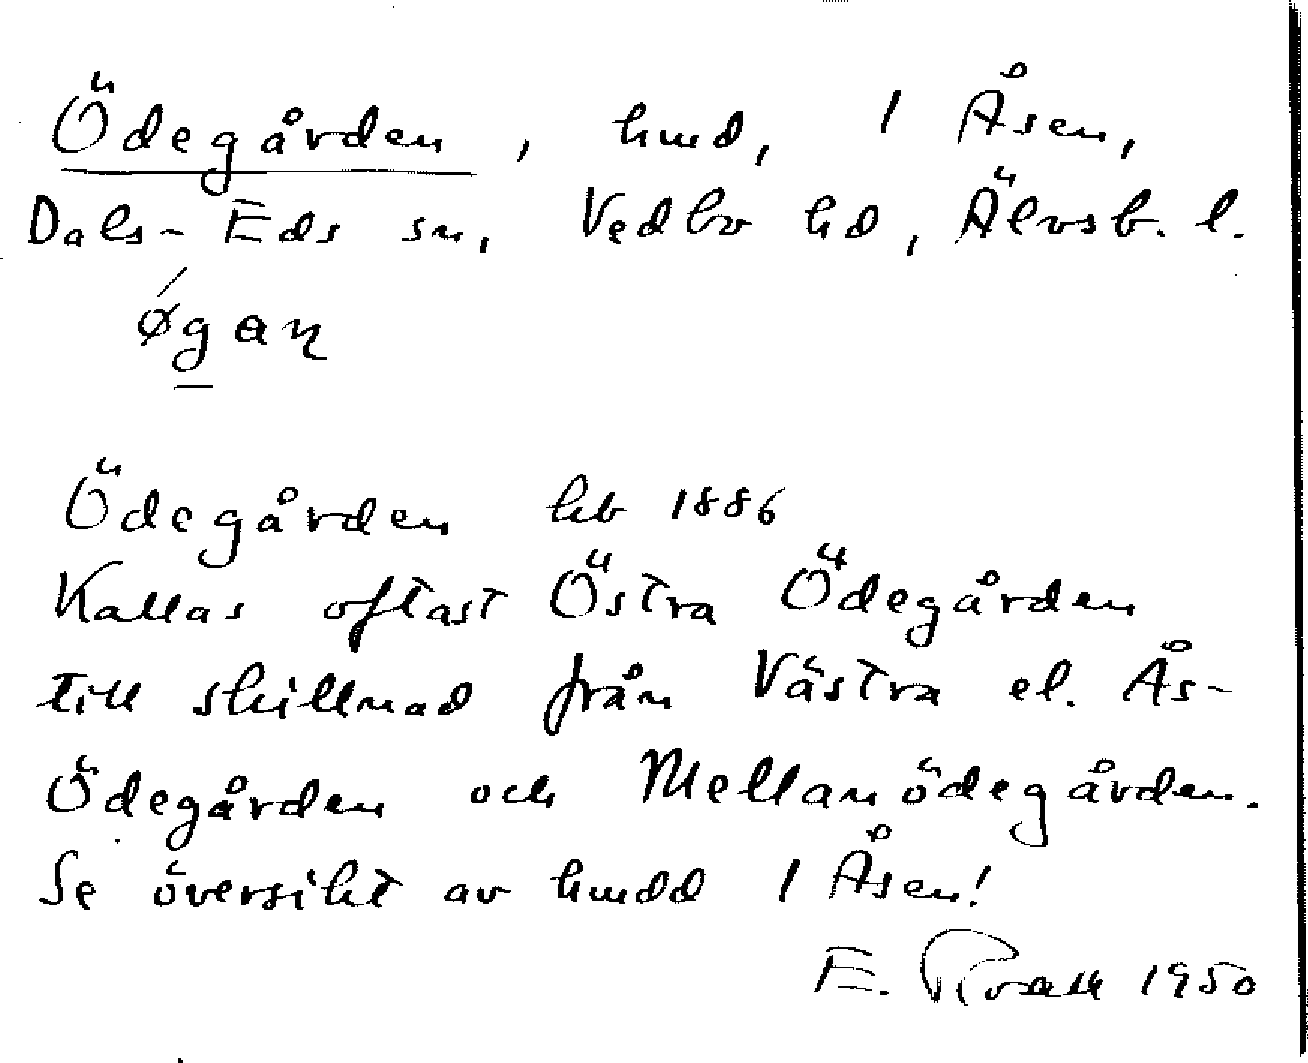 Ödegården, hmd, 1 Åsen,
Dals-Eds sn, Vedbo hd, Älvsb. l.
øgaɳ
Ödegården hb 1886
Kallas oftast Östra Ödegården
till skillnad från Västra el. Ås-
Ödegården och Mellanödegården.
Se översikt av hmdd 1 Åsen!
E. 1950